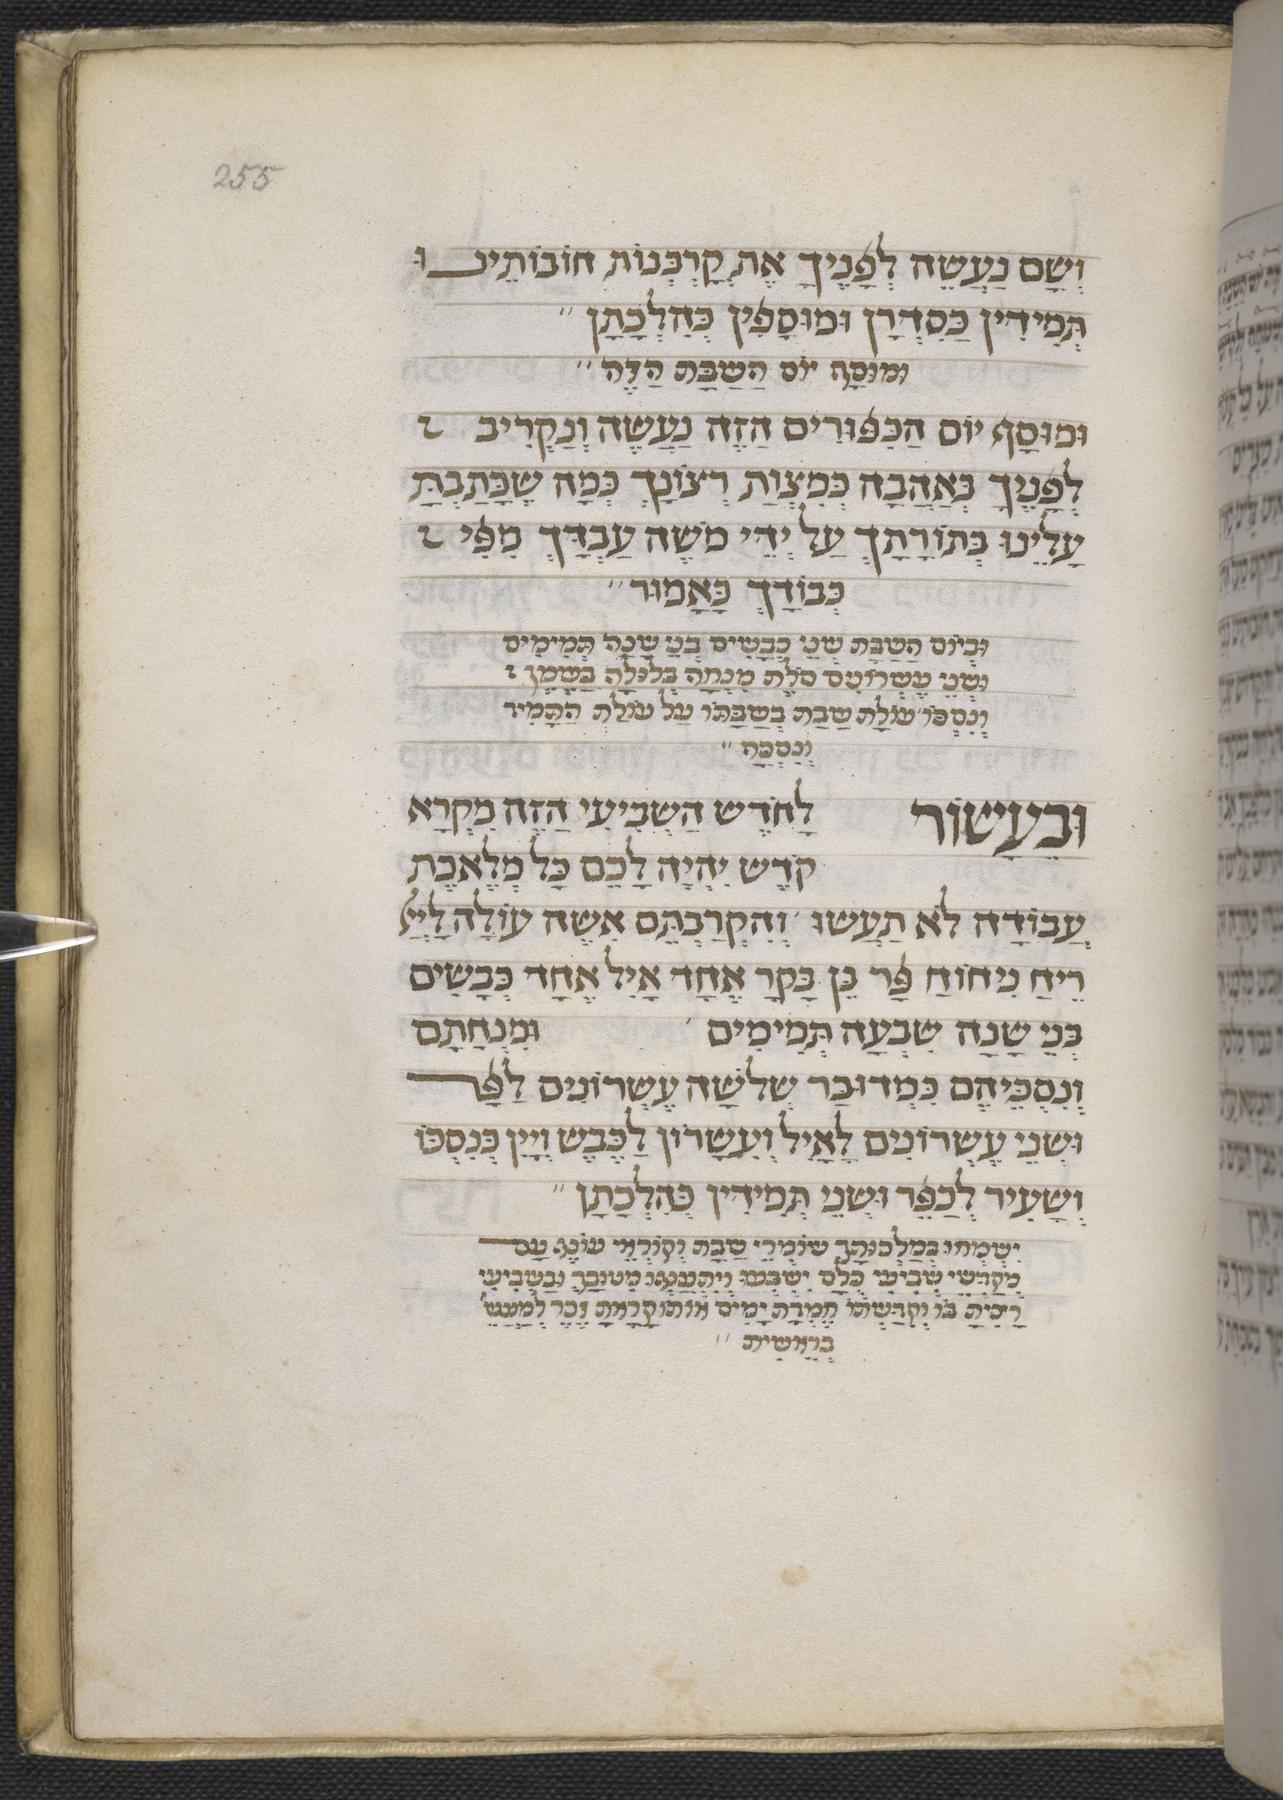 255
וְשָׁם נַעֲשֶׂה לְפָנֶיךָ אֶת קָרְבְּנוֹת חוֹבוֹתֵינוּ
תְּמִידִין כְּסִדְרָן וּמוּסָפִין כְּהִלְכָתָן ״
וּמוּסַף יוֹם הַשַּׁבָּת הַזֶּה ״
וּמוּסַף יוֹם הַכִּפּוּרִים הַזֶּה נַעֲשֶׂה וְנַקְרִיב
לְפָנֶיךָ בְּאַהֲבָה כְּמִצְוַת רְצוֹנָךְ כְּמָה שֶׁכָּתַבְתָּ
עָלֵינוּ בְּתוֹרָתָךְ עַל יְדֵי מֹשֶׁה עַבְדָּךְ מִפִּי
כְבוֹדָךְ כָּאָמוּר ״
וּבְיוֹם הַשַּׁבָּת שְׁנֵי כְבָשִׂים בְּנֵי שָׁנָה תְּמִימִים
וּשְׁנֵי עֶשְׂרוֹנִים סֹלֶת מִנְחָה בְּלוּלָה בַשֶּׁמֶן
וְנִסְכּוֹ עוֹלַת שַׁבַּת בְּשַׁבַּתּוֹ עַל עוֹלַת הַתָּמִיד
וְנִסְכָּהּ ״
וּבֶעָשׂוֹר לַחֹדֶשׁ הַשְּׁבִיעִי הַזֶּה מִקְרָא
קֹדֶשׁ יִהְיֶה לָכֶם כָּל מְלֶאכֶת
עֲבוֹדָה לֹא תַעֲשׂוּ ׳ וְהִקְרַבְתֶּם אִשֶּׁה עוֹלָה לַיְיָ
רֵיחַ נִיחוֹחַ פַּר בֶּן בָּקָר אֶחָד אַיִל אֶחָד כְּבָשִׂים
בְּנֵי שָׁנָה שִׁבְעָה תְּמִימִים ׳ וּמִנְחָתָם
וְנִסְכֵּיהֶם כִּמְדוּבָּר שְׁלֹשָׁה עֶשְׂרוֹנִים לַפָּר
וּשְׁנֵי עֶשְׂרוֹנִים לָאַיִל וְעִשָּׂרוֹן לַכֶּבֶשׂ וְיַיִן כְּנִסְכּוֹ
וְשָׂעִיר לְכַפֵּר וּשְׁנֵי תְמִידִין כְּהִלְכָתָן ״
יִשְׂמְחוּ בְמַלְכוּתָךְ שׁוֹמְרֵי שַׁבָּת וְקוֹרְאֵי עוֹנֶג עַם
מְקַדְּשֵׁי שְׁבִיעִי כֻּלָּם יִשְׂבְּעוּ וְיִתְעַנְּגוּ מִטּוּבָךְ וּבַשְּׁבִיעִי
רָצִיתָ בּוֹ וְקִדַּשְׁתּוֹ חֶמְדַּת יָמִים אוֹתוֹ קָרָאתָ זֵכֶר לְמַעֲשֵׂה
בְרֵאשִׁית ״